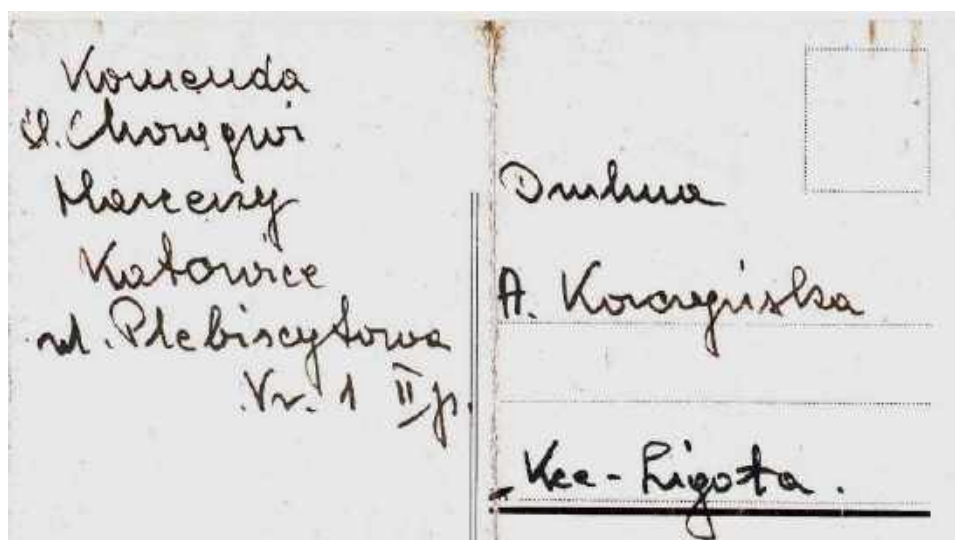 Komenda
Śl. Chorągwi
Harcerzy
Katowice
ul. Plebiscytowa
Nr. 1 II p.
Druhna
A.
Kce-Ligota.